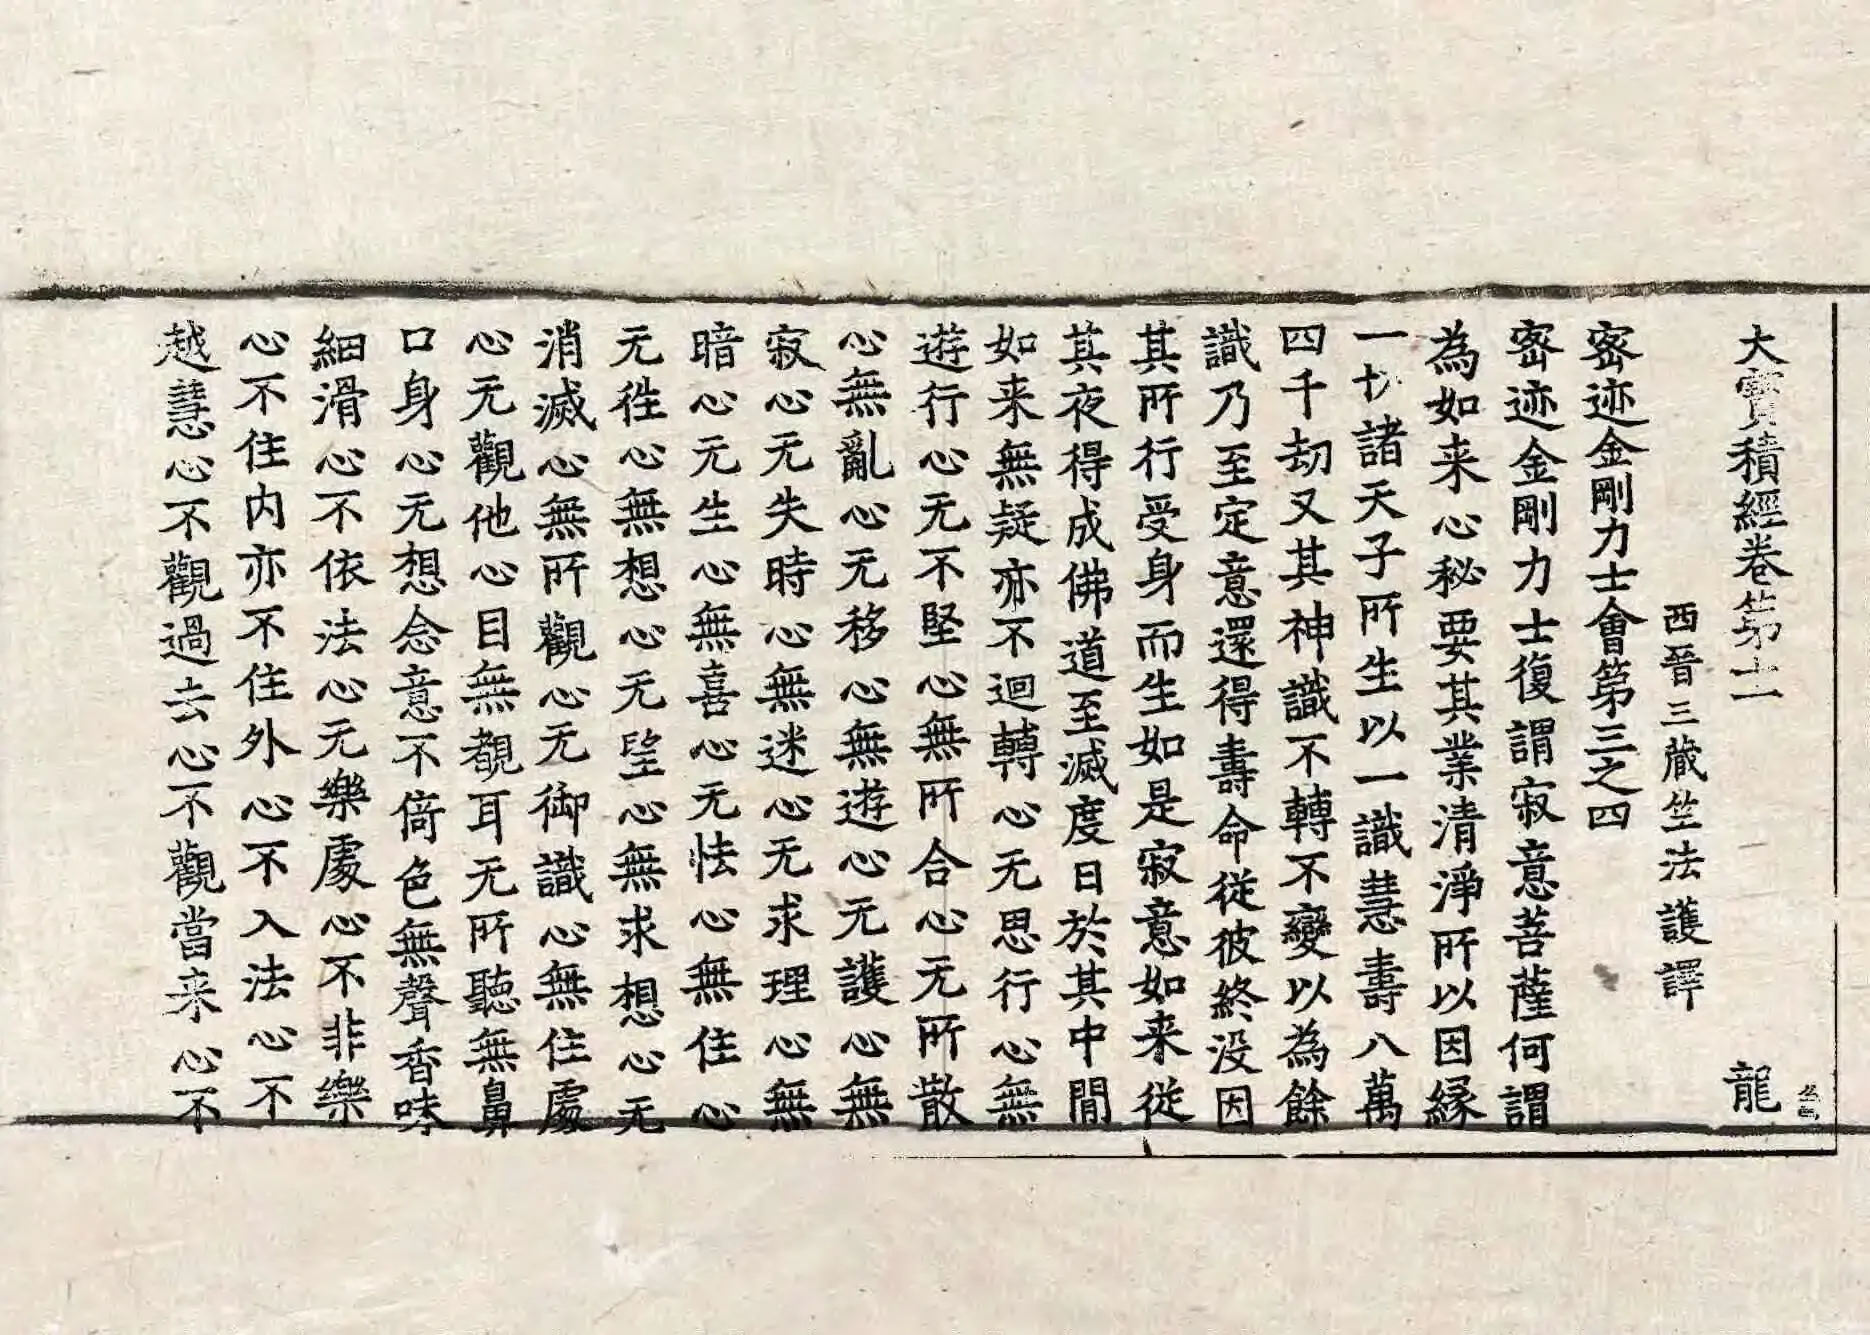 大寶積經卷第十一 龍
西晉三藏竺法護譯
密迹金剛力士會第三之四
密迹金剛力士復謂寂意菩薩何謂
為如来心秘要其業清淨所以因緣
一切諸天子所生以一識慧壽八萬
四千劫又其神識不轉不變以為餘
識乃至定意還得壽命從彼終没因
其所行受身而生如是寂意如来從
其夜得成佛道至滅度日於其中間
如来無疑亦不迴轉心无思行心無
遊行心无不堅心無所合心无所散
心無亂心无移心無遊心无護心無
寂心无失時心無迷心无求理心無
暗心无生心無喜心无怯心無住心
无徃心無想心无望心無求想心无
消滅心無所觀心无御識心無住處
心无觀他心目無覩耳无所聽無鼻
口身心无想念意不倚色無聲香味
細滑心不依法心无樂處心不非樂
心不住内亦不住外心不入法心不
越慧心不觀過去心不觀當来心不